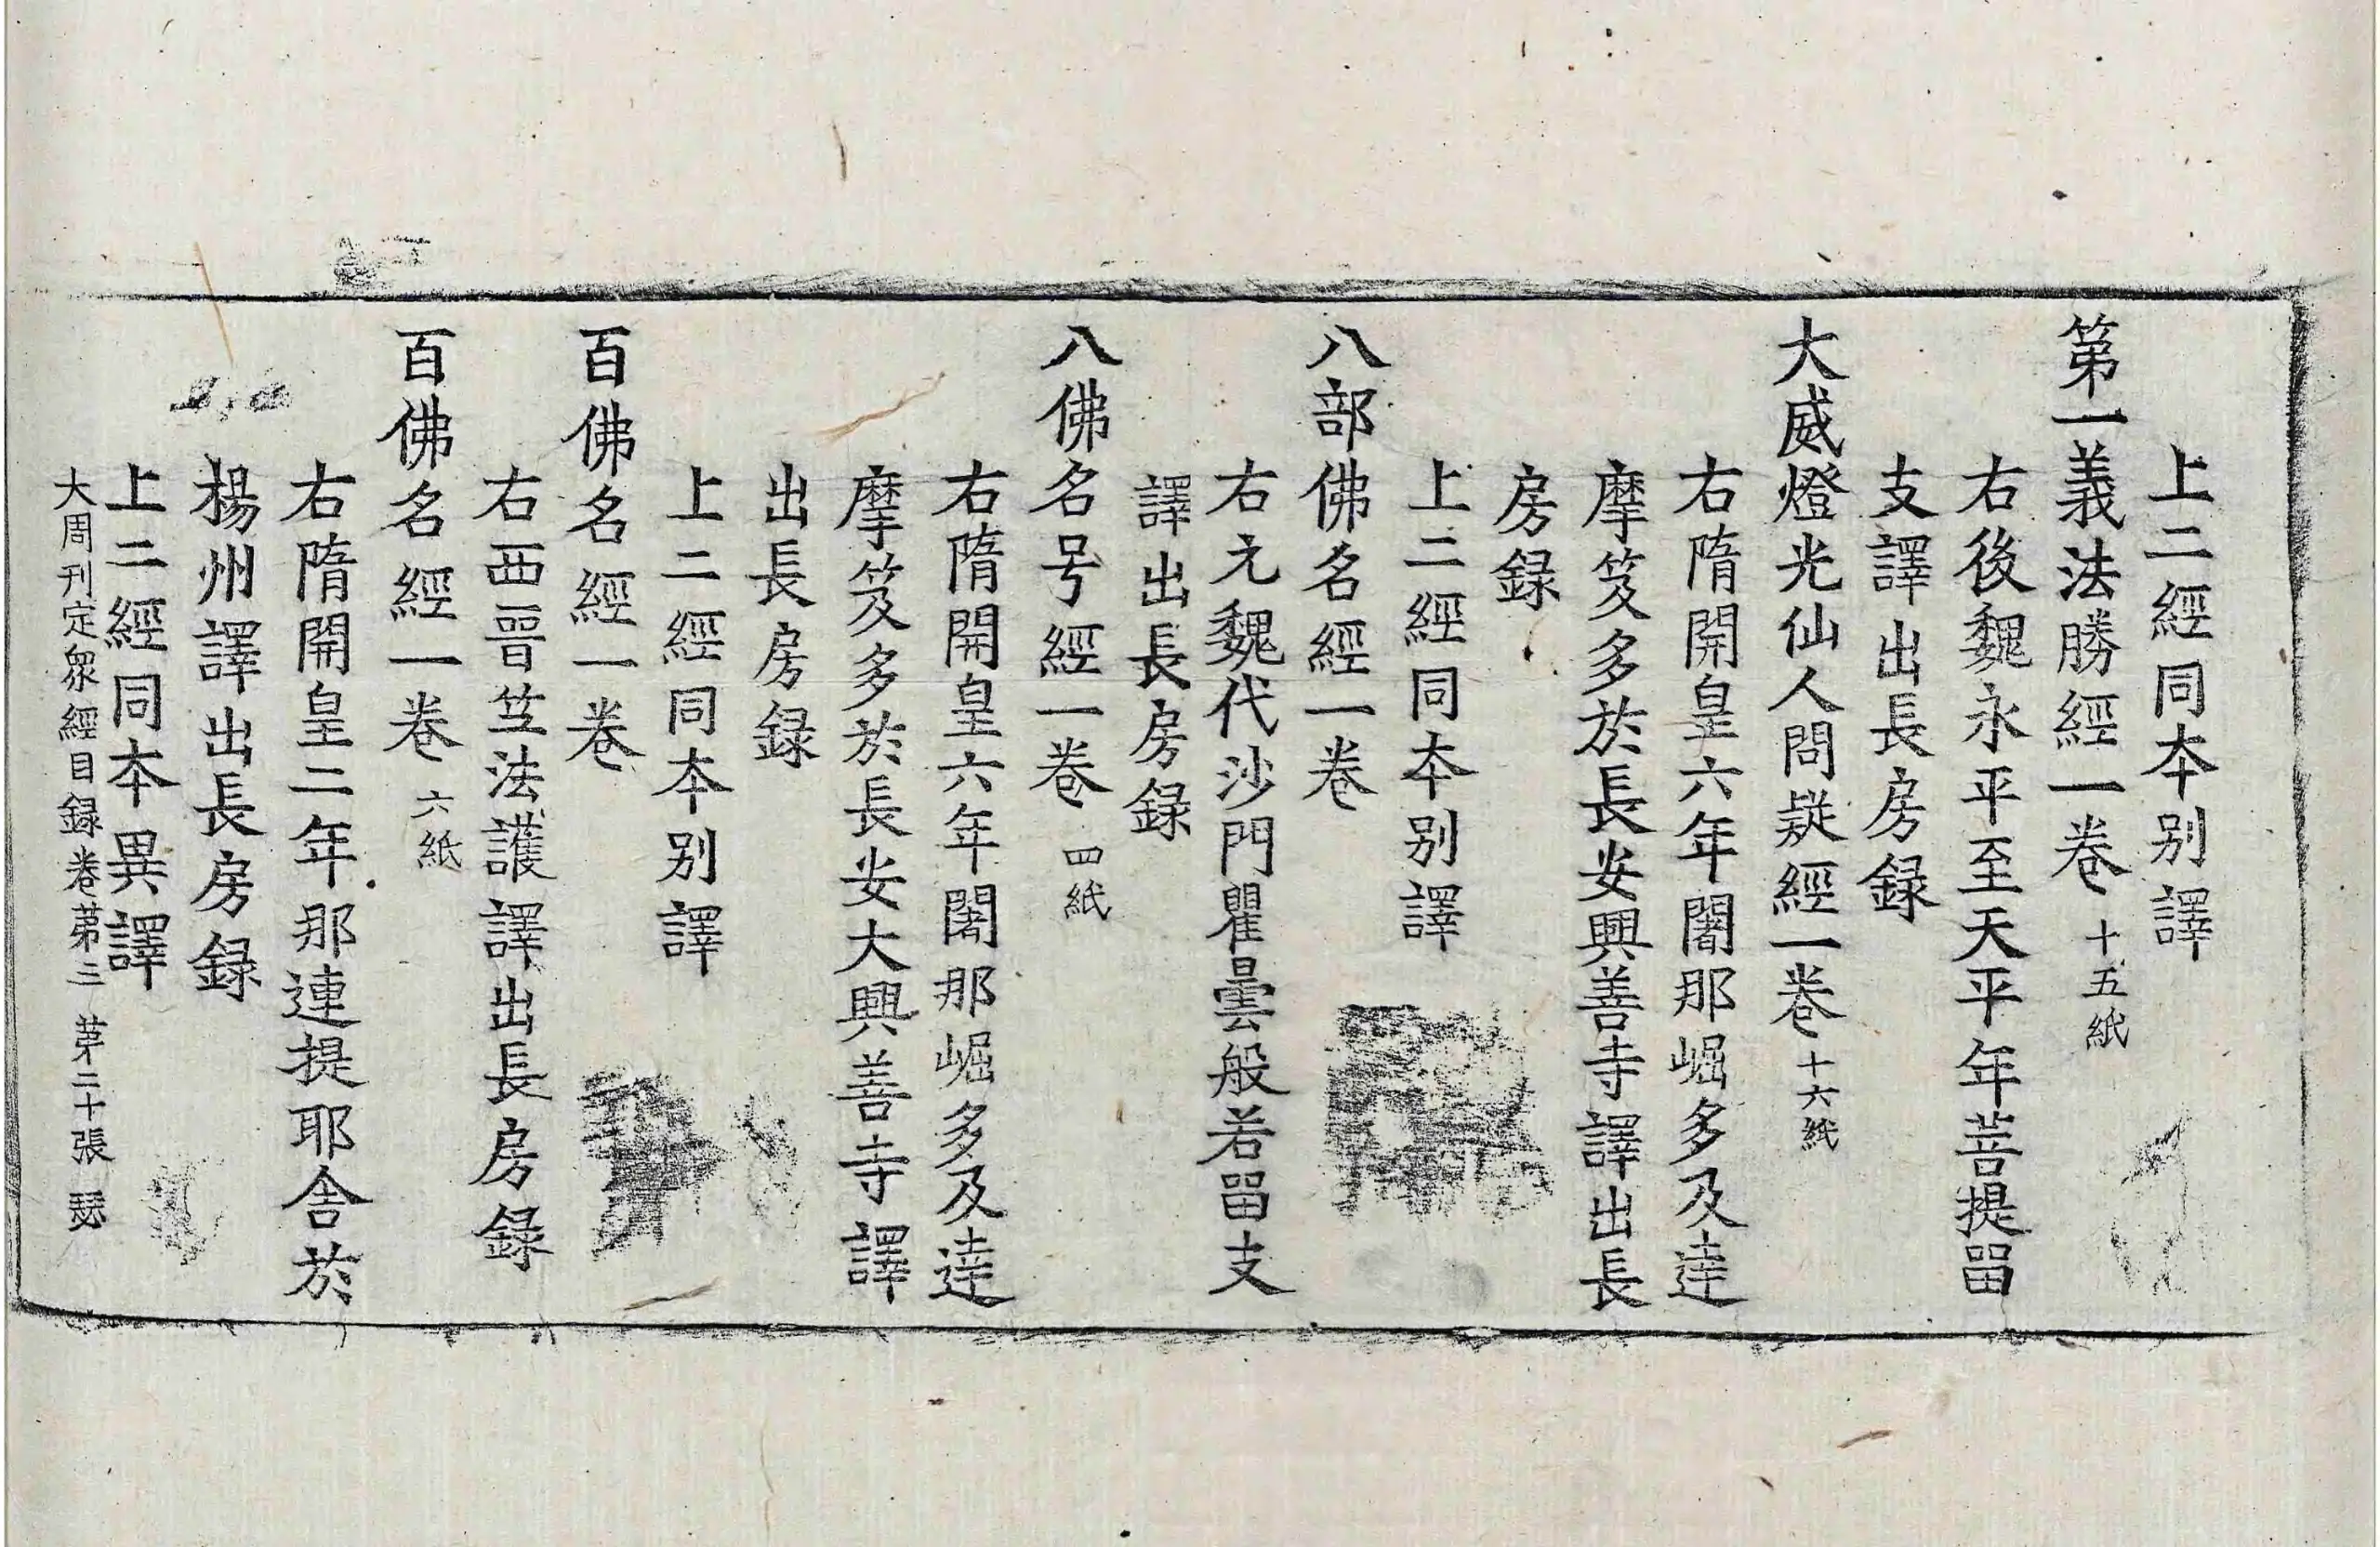 上二經同本別譯
第一義法勝經一卷 十五紙
右後魏永平至天平年菩提留
支譯出長房錄
大威燈光仙人問疑經一卷 十六紙
右隋開皇六年闍那崛多及達
摩笈多於長安興善寺譯出長
房錄
上二經同本別譯
八部佛名經一卷
右元魏代沙門瞿曇般若留支
譯出長房錄
八佛名号經一卷 四紙
右隋開皇六年闍那崛多及達
摩笈多於長安大興善寺譯
出長房錄
上二經同本別譯
百佛名經一卷
右西晉竺法護譯出長房錄
百佛名經一卷 六紙
右隋開皇二年那連提耶舍於
楊州譯出長房錄
上二經同本異譯
大周刊定衆經目録卷第三 第二十張 瑟